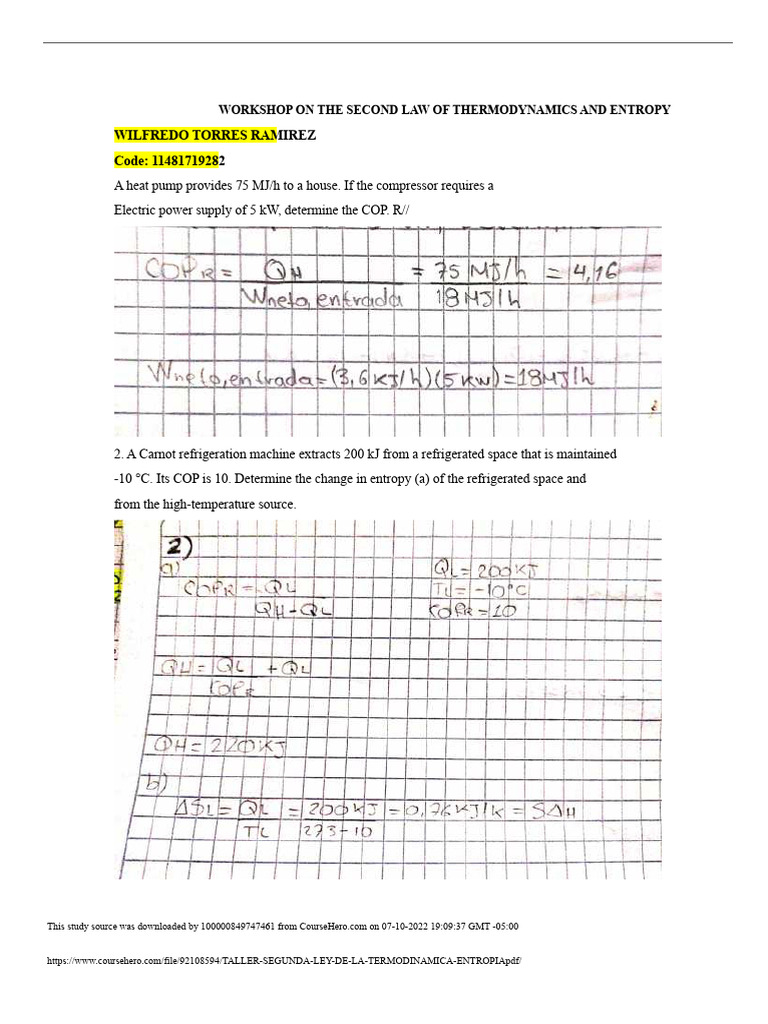 WORKSHOP ON THE SECOND LAW OF THERMODYNAMICS AND ENTROPY
WILFREDO TORRES RAMIREZ
Code: 11481719282
A heat pump provides 75 MJ/h to a house. If the compressor requires a
Electric power supply of 5 kW, determine the COP. R//
COPR = QH / Wneto, entrada = 75 MJ/h / 18 MJ/h = 4,16
Wneto, entrada = (3,6 KJ/h)(5 KW) = 18 MJ/h
2. A Carnot refrigeration machine extracts 200 kJ from a refrigerated space that is maintained
-10 °C. Its COP is 10. Determine the change in entropy (a) of the refrigerated space and
from the high-temperature source.
2)
a)
QL = 200 KJ
COPR = QL / QH - QL
TL = -10°C
COPR = 10
QH = QL / COPR + QL
QH = 220 KJ
b)
ΔSL = QL / TL = 200 KJ / 273-10 = 0,76 KJ/K = SΔH
This study source was downloaded by 100000849747461 from CourseHero.com on 07-10-2022 19:09:37 GMT -05:00
https://www.coursehero.com/file/92108594/TALLER-SEGUNDA-LEY-DE-LA-TERMODINAMICA-ENTROPIApdf/